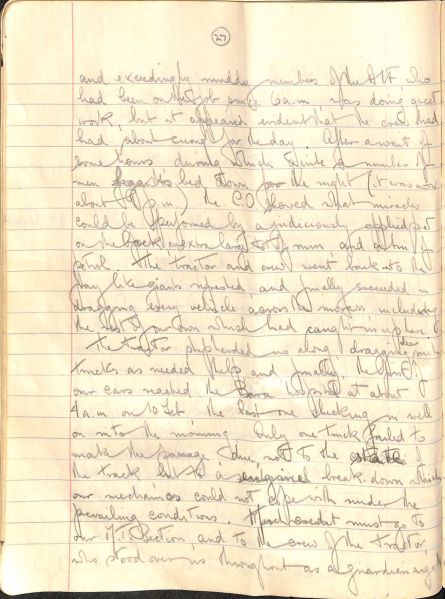 27
and exceedingly muddy members of the AIF who
had been on the job since 6 a.m., was doing great
work, but it appeared evident that the crew had
had about enough for the day. After a wait of
some hours during which quite a number of
men began to bed down for the night (it was now
about 10 p.m.) the C.O. showed what miracles
could be performed by a judiciously applied pat
on the back, an extra large tot of rum and a tin of
petrol. The tractor and crew went back into the
fray like giants refreshed, and finally succeeded in
dragging every vehicle across the morass including
the rest of our own which had caught us up here.
The tractor shepherded us along, dragging such
trucks as needed help and finally the first of
our cars reached the Barce hospital at about
4 a.m. on 10 Feb the last one checking in well
on into the morning. Only one truck failed to
make the passage (due, not to the state of
the track but to a break down which
our mechanics could not cope with under the
prevailing conditions. Much credit must go to
our M.T. Section, and to the crew of the tractor
who stood over us throughout as a guardian angel